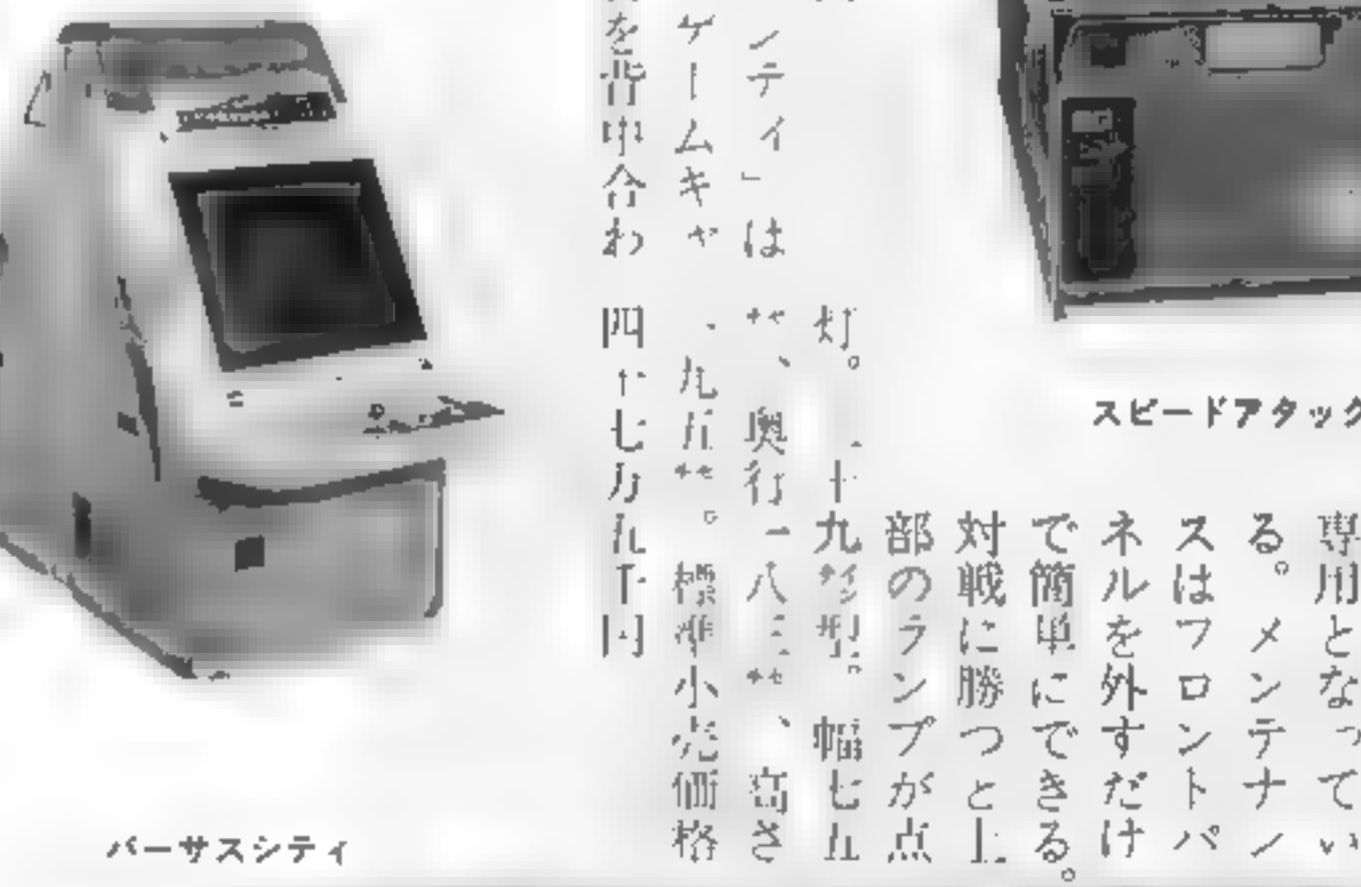 スピードアタック
専用となってい
る。メンテナン
スはフロントパ
ネルを外すだけ
で簡単にできる。
対戦に勝つと上
部のランプが点
灯。二十九インチ型。幅七五
㌢、奥行一八三㌢、高さ
一九五㌢。標準小売価格
四十七万九千円
ンティ」は
ゲームキャ
を背中合わ
バーサスシティ